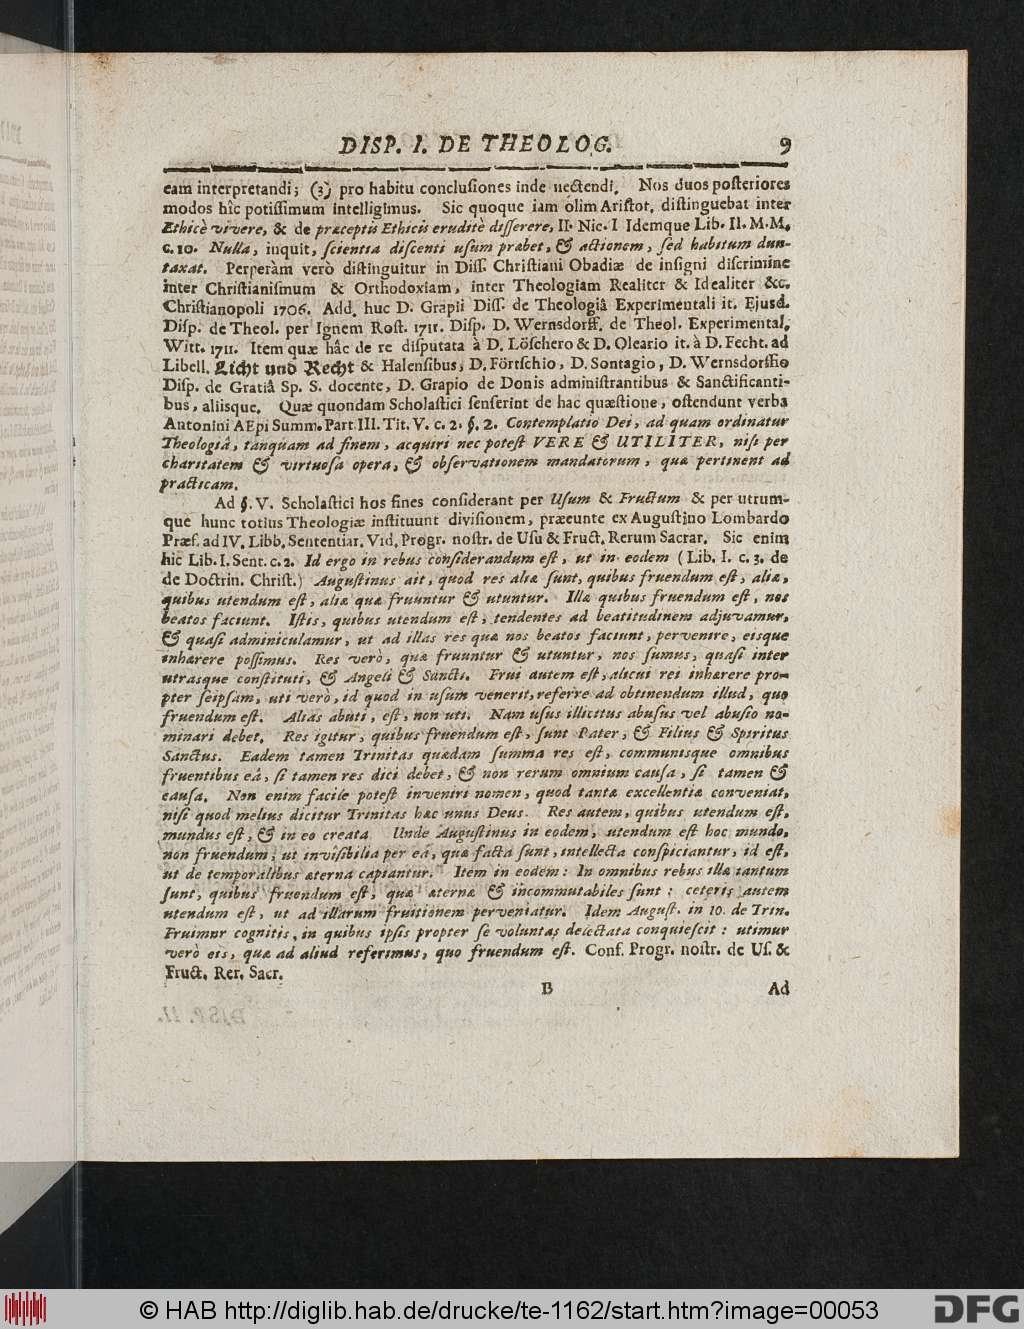 DISP. I. DE THEOLOG. 9
eam interpretandi; (3) pro habitu conclusiones inde nectendi. Nos duos posteriores
modos hîc potissimum intelligimus. Sic quoque iam olim Aristot. distinguebat inter
Ethicè vivere, & de præceptis Ethicis eruditè disserere, II. Nic. I Idemque Lib. II. M. M.
c. 10. Nulla, inquit, scientia discenti usum præbet, & actionem, sed habitum dun-
taxat. Perperàm verò distinguitur in Diss. Christiani Obadiæ de insigni discrimine
inter Christianismum & Orthodoxiam, inter Theologiam Realiter & Idealiter &c.
Christianopoli 1706. Add. huc D. Grapii Diss. de Theologiâ Experimentali it. Ejusd.
Disp. de Theol. per Ignem Rost. 1711. Disp. D. Wernsdorff. de Theol. Experimental.
Witt. 1711. Item quæ hâc de re disputata à D. Löschero & D. Oleario it. à D. Fecht. ad
Libell. Licht und Recht & Halensibus, D. Förtschio, D. Sontagio, D. Wernsdorffio
Disp. de Gratiâ Sp. S. docente, D. Grapio de Donis administrantibus & Sanctificanti-
bus, aliisque. Quæ quondam Scholastici senserint de hac quæstione, ostendunt verba
Antonini AEpi Summ. Part III. Tit. V. c. 2. §. 2. Contemplatio Dei, ad quam ordinatur
Theologiâ, tanquam ad finem, acquiri nec potest VERE & UTILITER, nisi per
charitatem & virtuosa opera, & observationem mandatorum, quæ pertinent ad
practicam.
Ad §. V. Scholastici hos fines considerant per Usum & Fructum & per utrum-
que hunc totius Theologiæ instituunt divisionem, præeunte ex Augustino Lombardo
Præf. ad IV. Libb. Sententiar. Vid. Progr. nostr. de Usu & Fruct. Rerum Sacrar. Sic enim
hic Lib. I. Sent. c. 2. Id ergo in rebus considerandum est, ut in eodem (Lib. I. c. 3. de
de Doctrin. Christ.) Augustinus ait, quod res aliæ sunt, quibus fruendum est, aliæ,
quibus utendum est, aliæ quæ fruuntur & utuntur. Illæ quibus fruendum est, nos
beatos faciunt. Istis, quibus utendum est, tendentes ad beatitudinem adjuvamur,
& quasi adminiculamur, ut ad illas res quæ nos beatos faciunt, pervenire, eisque
inhærere possimus. Res verò, quæ fruuntur & utuntur, nos sumus, quasi inter
utrasque constituti, & Angeli & Sancti. Frui autem est, alicui rei inhærere pro-
pter seipsam, uti verò, id quod in usum venerit, referre ad obtinendum illud, quo
fruendum est. Alias abuti, est, non uti. Nam usus illicitus abusus vel abusio no-
minari debet. Res igitur, quibus fruendum est, sunt Pater, & Filius & Spiritus
Sanctus. Eadem tamen Trinitas quædam summa res est, communisque omnibus
fruentibus eâ, si tamen res dici debet, & non rerum omnium causa, si tamen &
causa. Non enim facile potest inveniri nomen, quod tantæ excellentiæ conveniat,
nisi quod melius dicitur Trinitas hæc unus Deus. Res autem, quibus utendum est,
mundus est, & in eo creata Unde Augustinus in eodem, utendum est hoc mundo,
non fruendum; ut invisibilia per eâ, quæ facta sunt, intellecta conspiciantur, id est,
ut de temporalibus æterna capiantur. Item in eodem: In omnibus rebus illæ tantum
sunt, quibus fruendum est, quæ æternæ & incommutabiles sunt: ceteris autem
utendum est, ut ad illarum fruitionem perveniatur. Idem August. in 10. de Trin.
Fruimur cognitis, in quibus ipsis propter se voluntas delectata conquiescit: utimur
verò eis, quæ ad aliud referimus, quo fruendum est. Conf. Progr. nostr. de Us. &
Fruct. Rer. Sacr.
B Ad
© HAB http://diglib.hab.de/drucke/te-1162/start.htm?image=00053
DFG